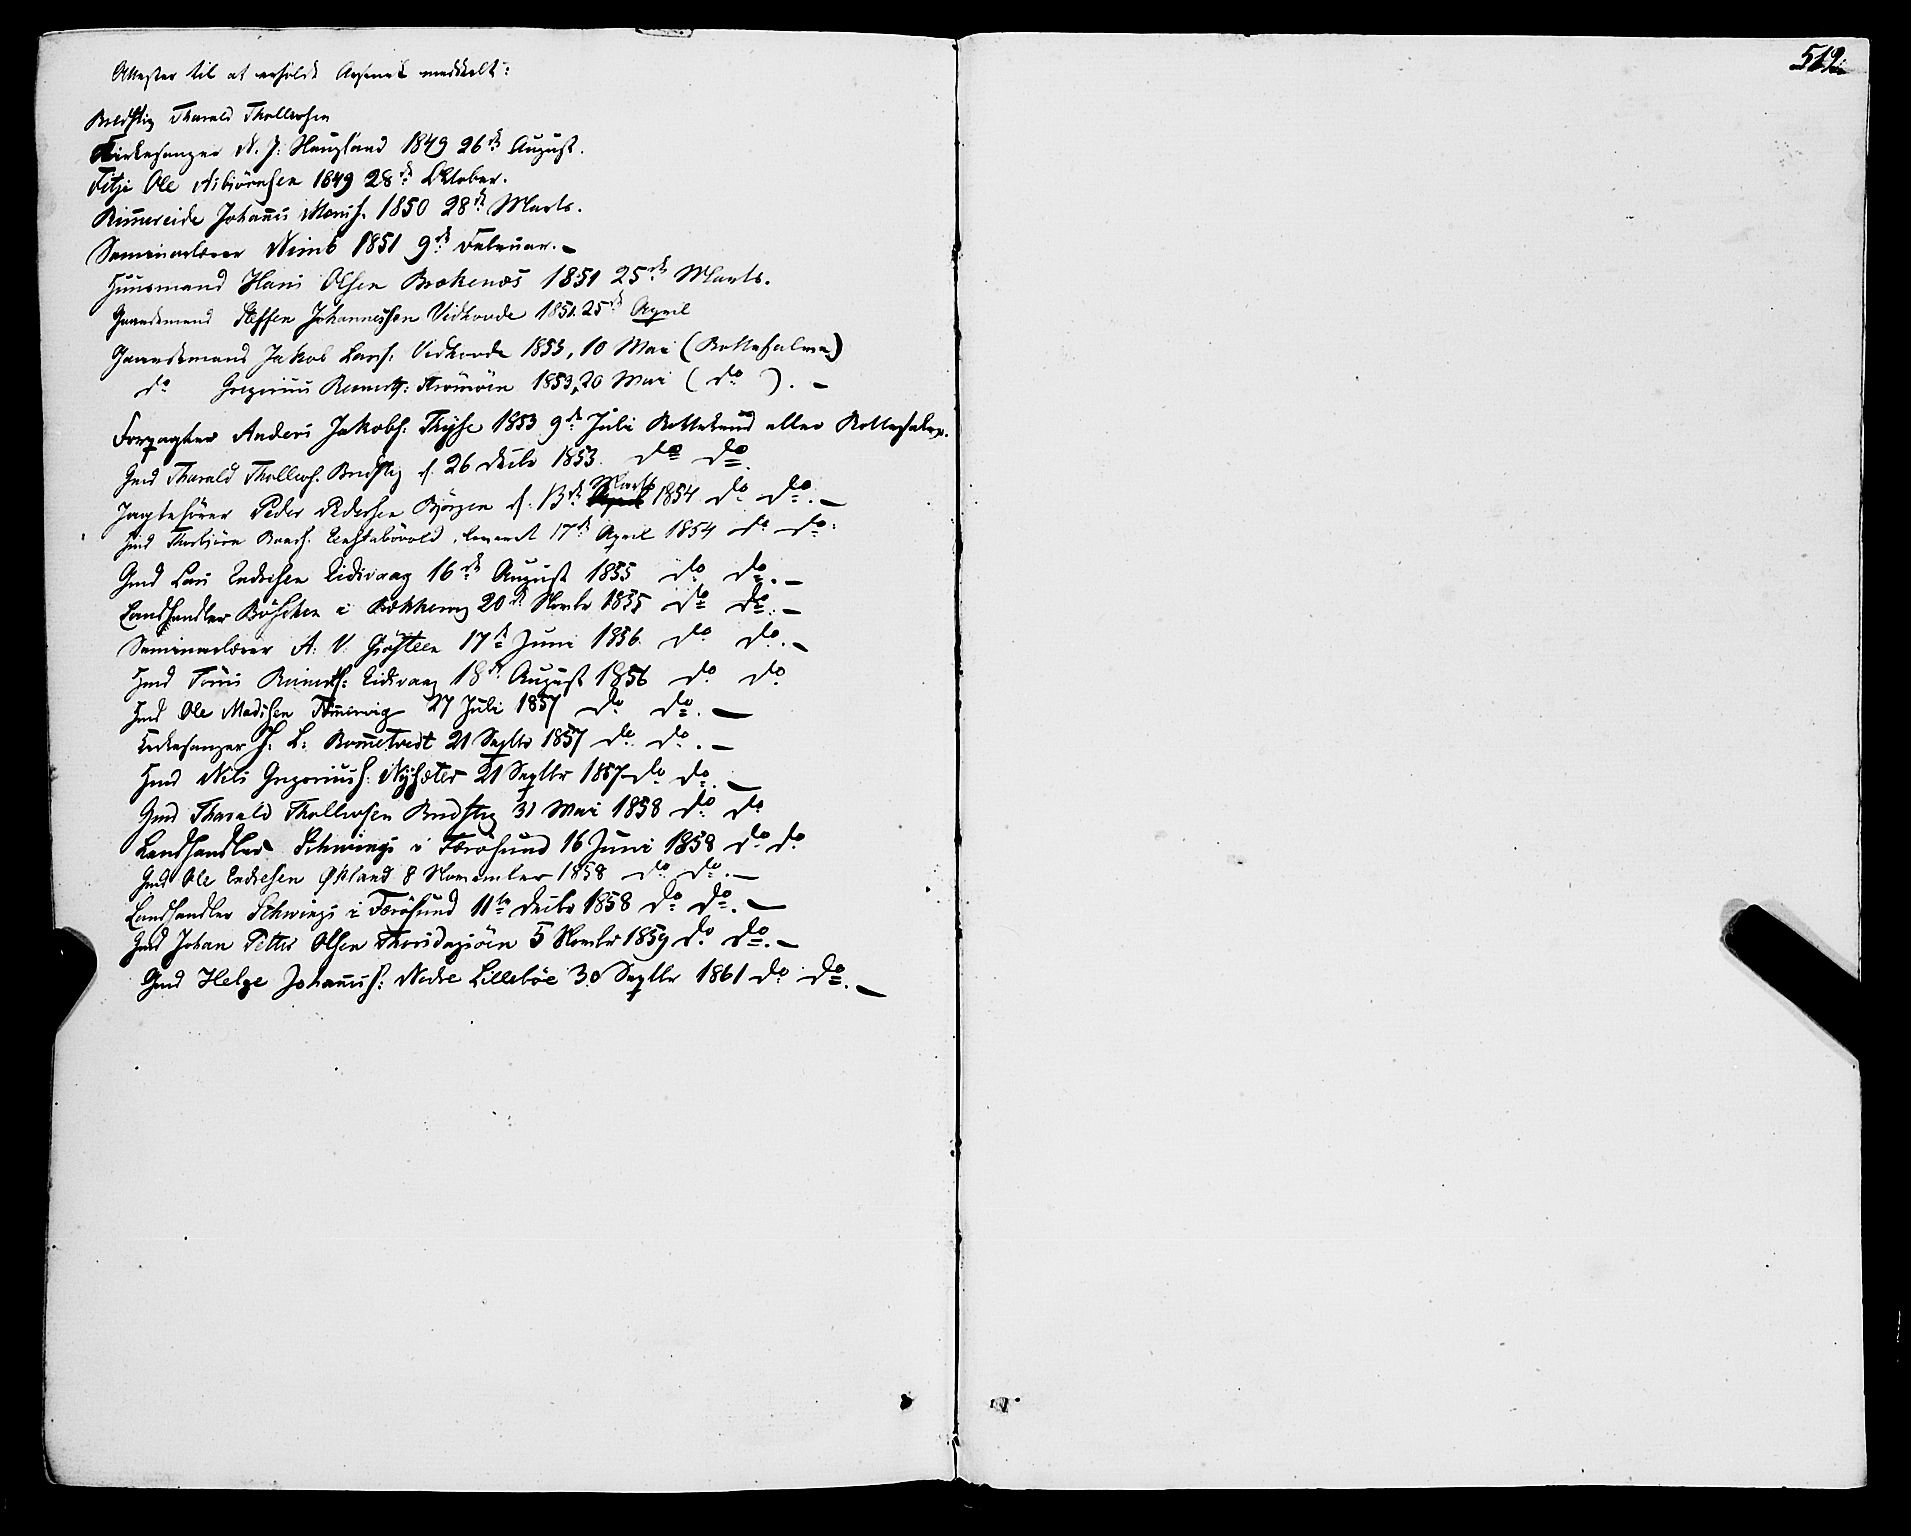 Attester til at erholde Arsenik meddeelt:
Bredsteg Tharald Thollevsen
Kirkesanger N. J. Haugland 1849 26de August.
Fitje Ole Aibiörnsen 1849 28de Oktober.
Rimmereide Johannis Monss. 1850 28de Marts.
Seminarlærer Wind 1851 9de Februar. —
Huusmand Hans Olsen Brækenæs 1851 25de Marts.
Gaardmand Steffen Johannessen Vidhovde 1851. 25de April
Gaardmand Jakob Larss. Vidhovde 1853, 10 Mai (Rottesalve)
do Gregorius Reinerts: Strömöen 1853, 20 Mai ( do ). —
Forpagter Anders Jakobs. Thyse 1853 9de Juli Rottekrud eller Rottesalve.
Gmd Tharald Thollevs. Bredsteg d. 26 Decbr 1853. do do.
Jagtefører Peder Pedersen Bjørgen d. 13de Marts 1854 do do. —
Hmd Thorbiörn 17de April 1854 do do.
Gmd Lars Endresen Eidsvaag 16de August 1855 do do. —
Landhandler i Bækkervig 20de Novbr 1855 do do. —
Seminarlærer A. V. 17de Juni 1856. do do. —
Hmd Tönis Reinerts: Eidsvaag 18de August 1856 do do
Hmd Ole Madssen 27 Juli 1857 do do. —
Kirkesanger J. L. Rommetvedt 21 Septbr 1857 do do. —
Hmd Nils Gregoriuss: Nysæter 21 Septbr 1857 do do. —
Gmd Tharald Thollevsen Bredsteg 31 Mai 1858 do do
Landhandler Schwings i Færøsund 16 Juni 1858 do do
Gmd Ole Endresen Økland 8 November 1858 do do. —
Landhandler Schwings i Færøsund 11te Decbr 1858 do do. —
Gmd Johan Petter Olsen Thorsdagsöen 5 Novbr 1859 do do. —
Gmd Helge Johanniss: Nedre Lillebøe 30 Septbr 1861 do do. —
512